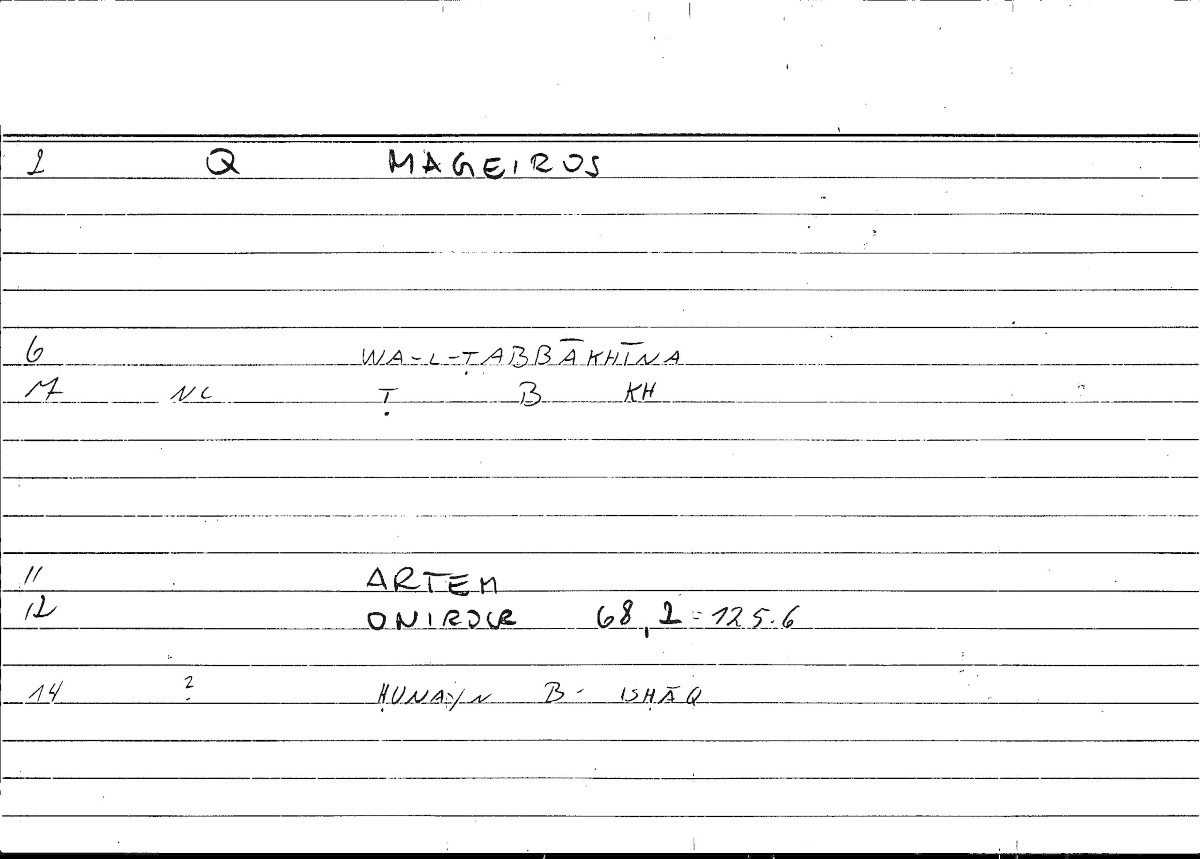 1 Q MAGEIROS
6 WA-L-ṬABBĀKHĪNA
7 NC Ṭ B KH
11 ARTEM
12 ONIROCR 68,1 = 125.6
14 2 ḤUNAYN B. ISḤĀQ